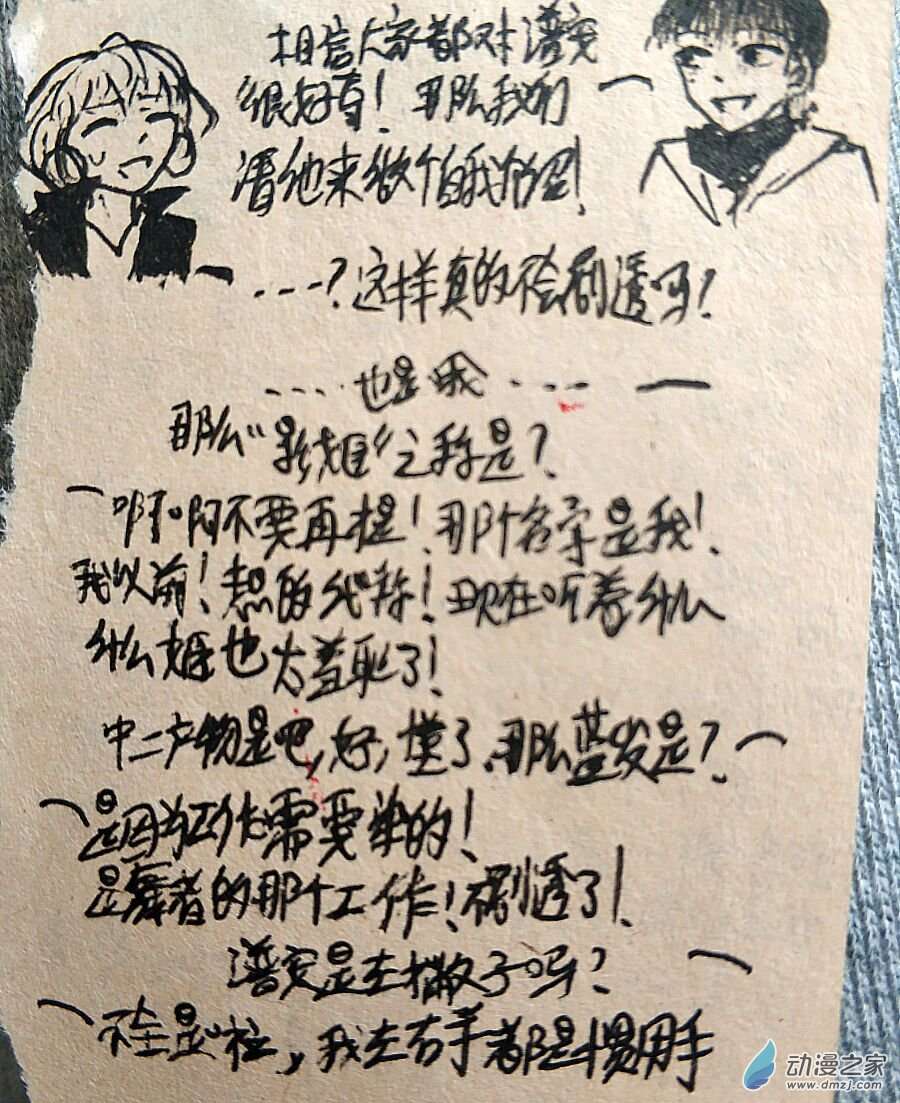 相信大家都对谱安
很好奇！那么我们
请他来做个自我介绍！
……？这样真的不会剧透吗？
……也是哦……
那么"影姬"之称是？
啊啊不要再提！那个名字是我！
我以前！想的代称！现在听着什么
什么姬也太羞耻了！
中二产物是吧，好，懂了，那么蓝发是？
是因为工作需要染的！
是舞者的那个工作！不剧透了！
谱安是左撇子吗？
不全是啦，我左右手都是惯用手
动漫之家
www.dmzj.com